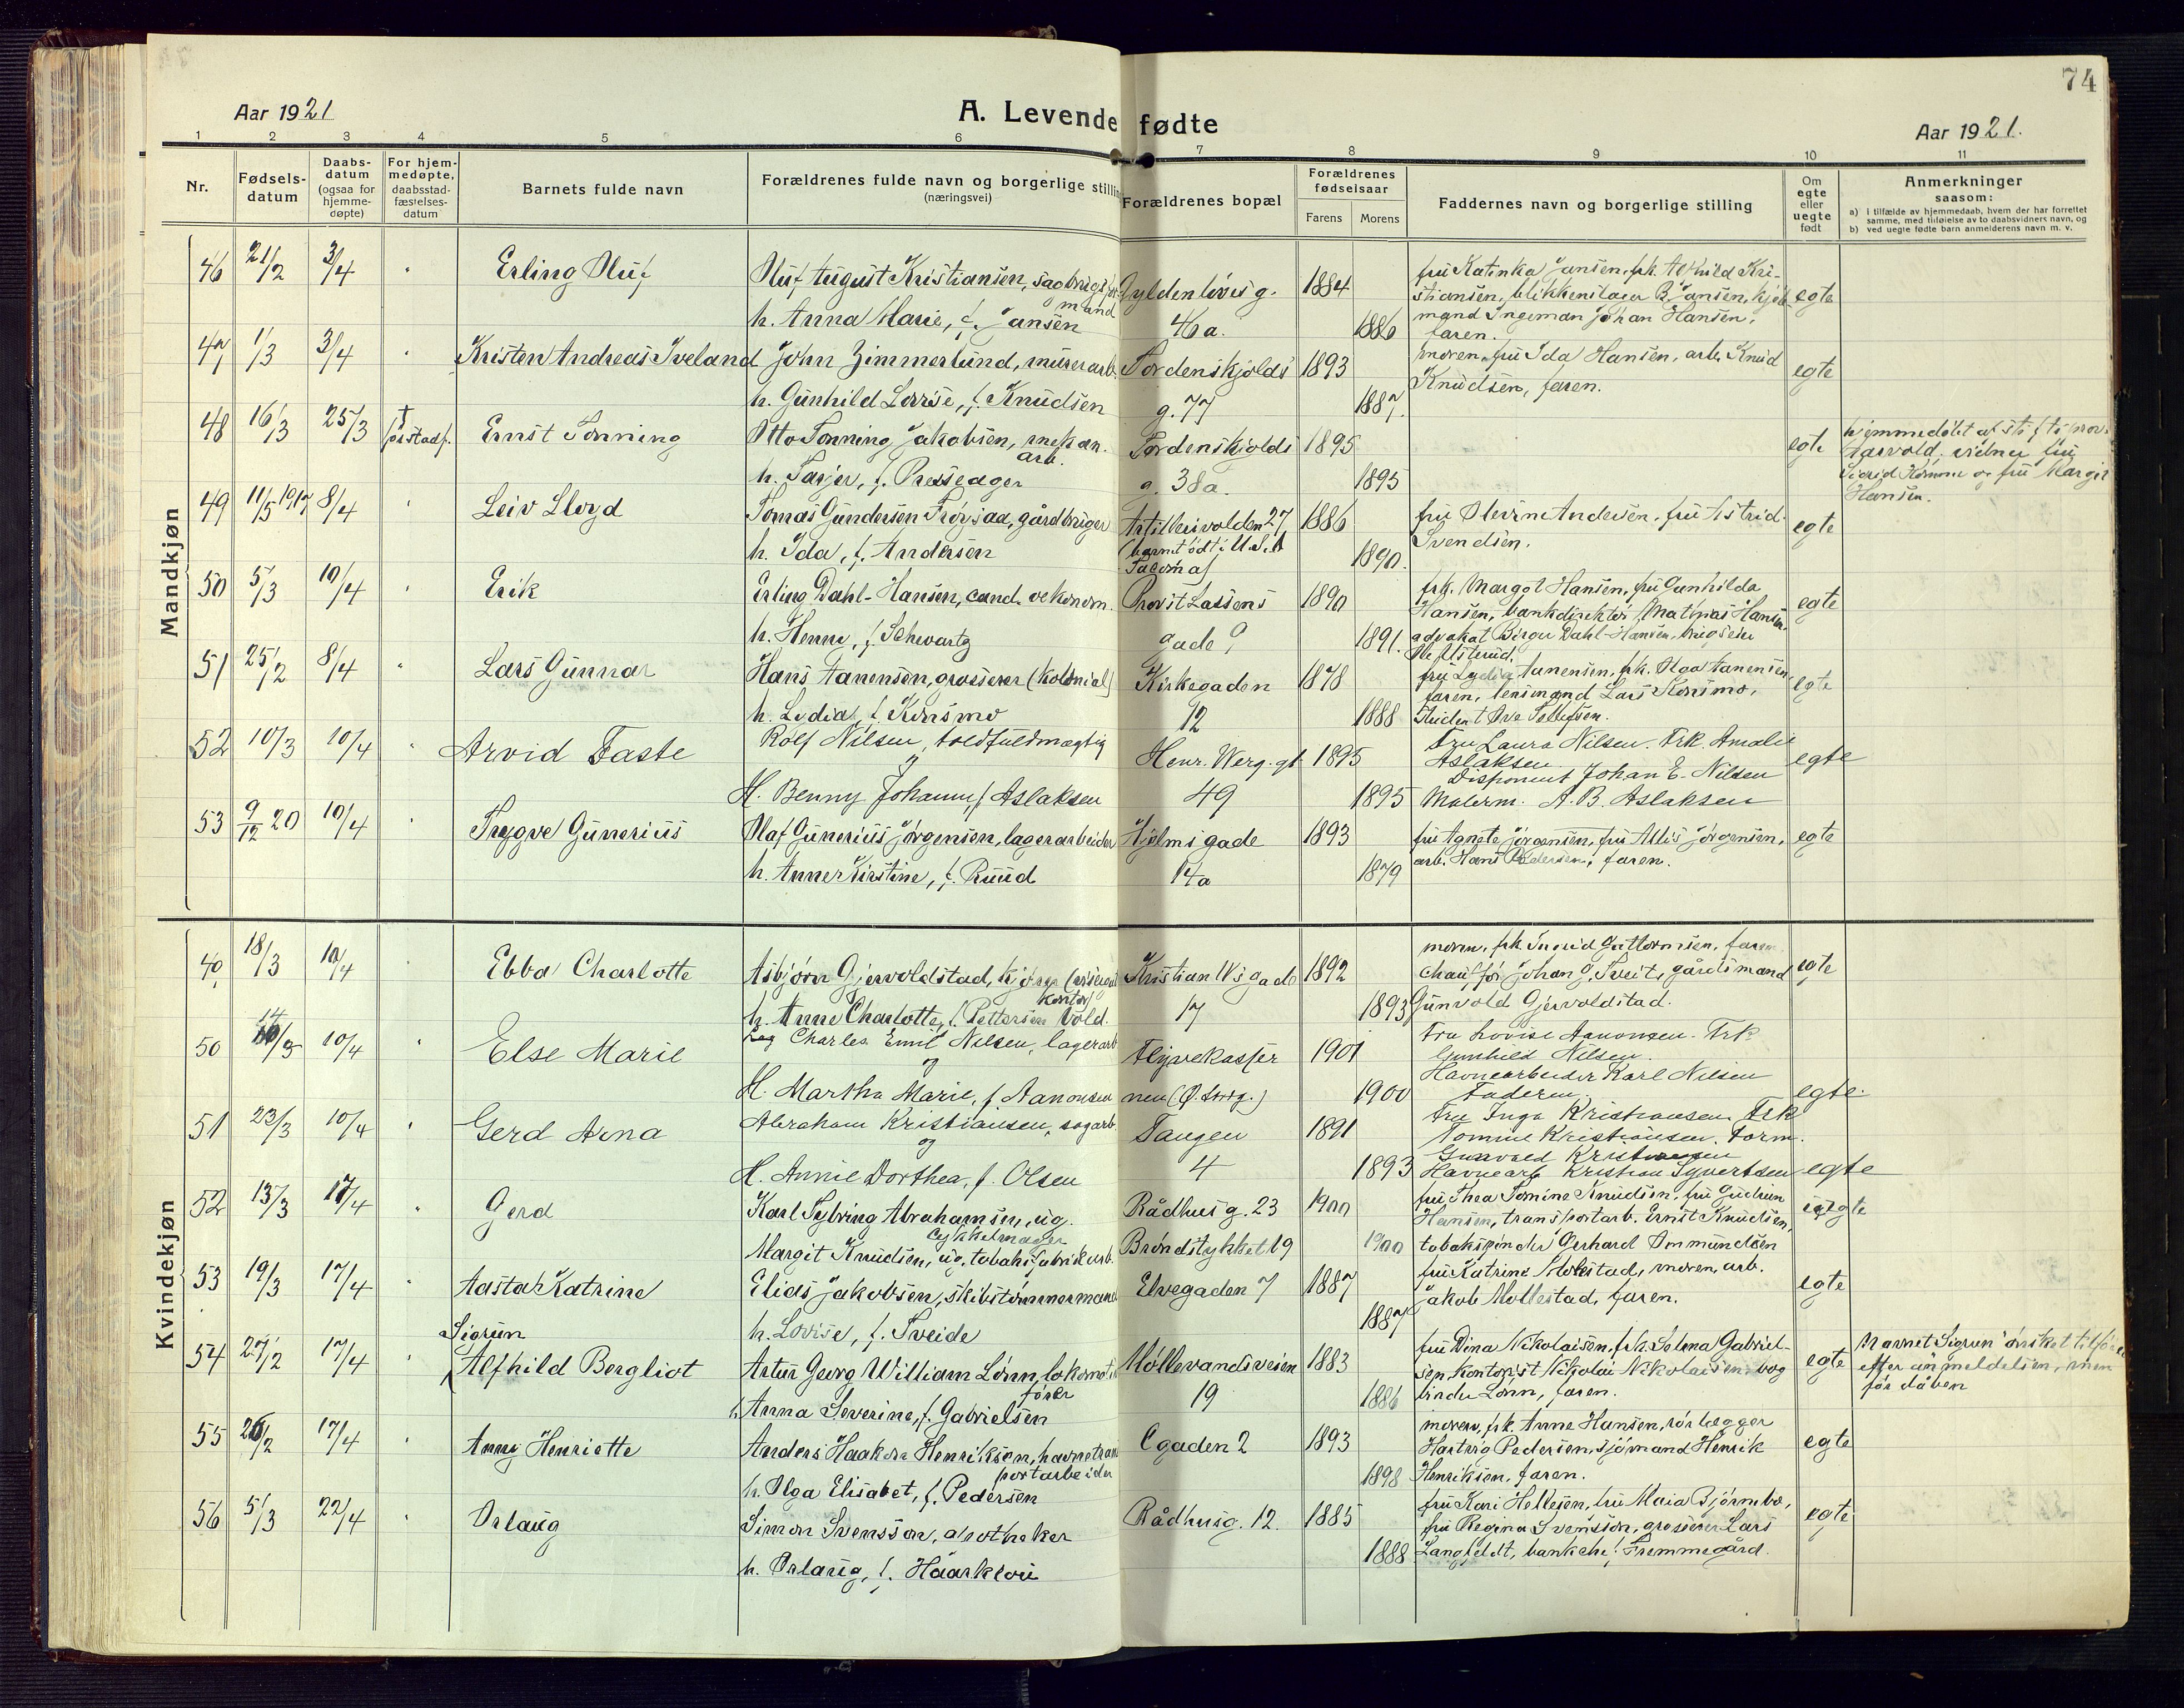 74
Aar 1921
A. Levende fødte
Aar 1921.
1 2 3 4 5 6 7 8 9 10 11
Nr.
Fødsels-
datum
Daabs-
datum
(ogsaa for
hjemme-
døpte)
For hjem-
medøpte,
daabsstad-
fæstelses-
datum
Barnets fulde navn
Forældrenes fulde navn og borgerlige stilling
(næringsvei)
Forældrenes bopæl
Forældrenes
fødselsaar
Farens Morens
Faddernes navn og borgerlige stilling
Om
egte
eller
uegte
født
Anmerkninger
saasom:
a) i tilfælde av hjemmedaab, hvem der har forrettet
samme, med tilføielse av to daabsvidners navn, og
b) ved uegte fødte barn anmelderens navn m. v.
Mandkjøn
46 21/2 3/4 Erling Oluf Oluf August Kristiansen, sagbrugsfor-
mand
Gyldenløves g. 1884
fru Katinka Jansen, frk. Alfhild Kri-
stiansen, blikkenslager B. Jansen, kjøb
mand Ingeman Johan Hansen,
faren.
egte
h. Anna Marie, f. Jansen 46 a. 1886
47 1/3 3/4 Kristen Andreas Iveland John Zimmerlund, murerarb. Tordenskjolds 1893
moren, fru Ida Hansen, arb. Knud
Knudsen, faren.
egte
h. Gunhild Lovise, f. Knudsen g. 77 1887.
48 16/3 25/3 Ernst Tonning Otto Tonning Jakobsen, mekan.
arb.
Tordenskjolds 1895 egte
hjemmedøbt af stiftsprov.
vidner fru
Sigrid og fru Margit
Hansen.
h. Tarjer, f. g. 38a. 1895
49 11/5 1917 8/4 Leiv Lloyd Tomas Gundersen Frøysaa, gårdbruger Artillerivolden 27 1886
(barnet født i U.S.A
Tacoma)
fru Olevine Andersen, fru Astrid
Svendsen.
egte
h. Ida, f. Andersen 1890.
50 5/3 10/4 Erik Erling Dahl-Hansen, cand. oekonom. Provst Lassens 1890
frk. Margot Hansen, fru Gunhilda
Hansen, bankdirektør Mathias Hansen,
advokat Birger Dahl-Hansen,
egte
h. Henny, f. Schwartz gade 9 1891.
51 25/2 8/4 Lars Gunnar Hans Aanensen, grosserer (kolonial) Kirkegaden 1878
fru Lydia Aanensen, frk. Olga Aanensen,
faren, lensmand Lars Konsmo,
student Ove Tellefsen.
egte
h. Lydia, f. Konsmo 12 1888
52 10/3 10/4 Arvid Faste Rolf Nilsen, toldfuldmægtig
og
Henr. Werg. gt 1895
Fru Laura Nilsen. Frk. Amalie
Aslaksen
Disponent Johan E. Nilsen
Malerm. A. B. Aslaksen
egte
H. Benny Johanne f Aslaksen 49 1895
53 9/12 20 10/4 Trygve Gunerius Olaf Gunerius Jørgensen, lagerarbeider Hjelms gade 1893
fru Agnete Jørgensen, fru Allis Jørgensen,
arb. Hans Pedersen, faren.
egte
h. Anne Kirstine, f. Ruud 14a 1879
Kvindekjøn
49 18/3 10/4 Ebba Charlotte Asbjørn Gjervoldstad,
kontor)
Kristian IVs gade 1892
moren, frk. Ingrid Guttormsen, faren
chauffør Johan G. Tveit, gårdsmand
Gunvold Gjervoldstad.
egte
h. Anne Charlotte, f. Pettersen Vold. 17 1893
50 14/3 10/4 Else Marie Charles Emil Nilsen, lagerarb
og
Flyvekaser 1901
Fru Lovise Aanonsen. Frk.
Gunhild Nilsen.
Havnearbeider Karl Nilsen
Faderen
egte
H. Martha Marie, f Aanonsen nen 1900
51 23/3 10/4 Gerd Arna Abraham Kristiansen, sagarb.
og
Tangen 1891
Fru Inga Kristiansen. Frk
Tomine Kristiansen. Form.
Gunvald Kristiansen
Havnearb Kristian Syvertsen
egte
H. Annie Dorthea, f. Olsen 4 1893
52 13/3 17/4 Gerd Karl Sylvring Abrahamsen, ug.
cykkelmager
Rådhus g. 23 1900
fru Thea Tomine Knudsen, fru Gudrun
Hansen, transportarb. Ernst Knudsen,
tobakspinder Gerhard Ommundsen
uegte
Margit Knudsen, ug. tobaksfabrikarb. Brøndstykket 19 1900
53 19/3 17/4 Aasta Katrine Elias Jakobsen, skibstømmermand Elvegaden 7 1887
fru Katrine Mollestad, moren, arb.
Jakob Mollestad, faren.
egte
h. Lovise, f. Tveide 1887
54 27/2 17/4 Sigrun
Alfhild Bergliot Artur Georg William Lønn, lokomotiv
fører
Møllevandsveien 1883
fru Dina Nikolaisen, frk. Selma Gabriel-
sen, kontorist Nikolai Nikolaisen, bog
binder Lønn, faren.
egte
Navnet "Sigrun" ønsket tilføiet
efter anmeldelsen, men
før dåben
h. Anna Severine, f. Gabrielsen 19 1886
55 26/2 17/4 Anny Henriette Anders Haakon Henriksen, havnetrans
portarbeider
Egaden 2 1893
moren, frk. Anne Hansen, rørlægger
Hartvig Pedersen, sjømand Henrik
Henriksen, faren.
egte
h. Olga Elisabet, f. Pedersen 1898
56 5/3 22/4 Orlaug Simon Svensson, apotheker Rådhusg. 12. 1885
fru Kari Hellesen, fru Maia Bjørnebo,
fru Regina Svensson, grosserer Lars
Langfeldt, bankchef Fremmegård.
egte
h. Orlaug, f. Haarklou 1888